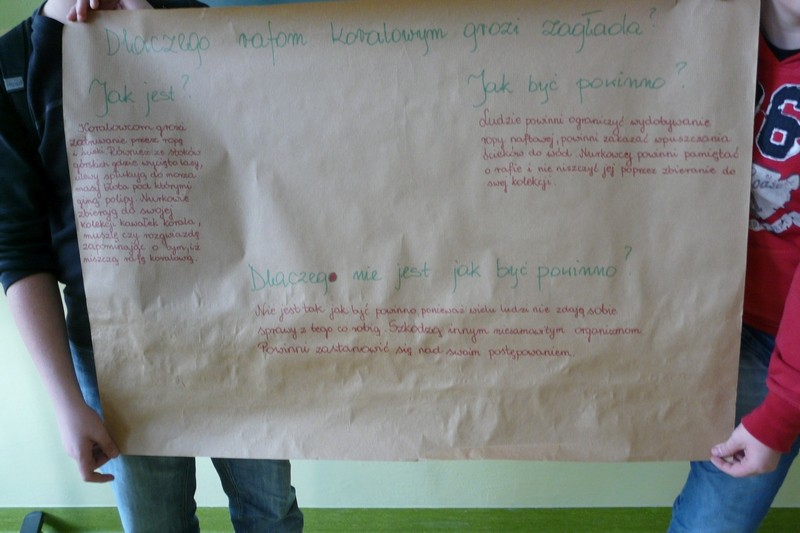 Dlaczego rafom koralowym grozi zagłada?
Jak jest?
Koralowcom grozi
zabijanie przez ropę
i ścieki. Również ze stoków
górskich gdzie wycięto lasy,
ulewy spłukują do morza
masy błota pod którymi
giną polipy. Nurkowie
zbierają do swojej
kolekcji kawałek korala,
muszlę czy rozgwiazdę
zapominając o tym, iż
niszczą rafę koralową.
Jak być powinno?
Ludzie powinni ograniczyć wydobywanie
ropy naftowej, powinni zakazać wpuszczania
ścieków do wód. Nurkowcy powinni pamiętać
o rafie i nie niszczyć jej poprzez zbieranie do
swej kolekcji.
Dlaczego nie jest jak być powinno?
Nie jest tak jak być powinno, ponieważ wielu ludzi nie zdają sobie
sprawy z tego co robią. Szkodzą innym niesamowitym organizmom.
Powinni zastanowić się nad swoim postępowaniem.
86